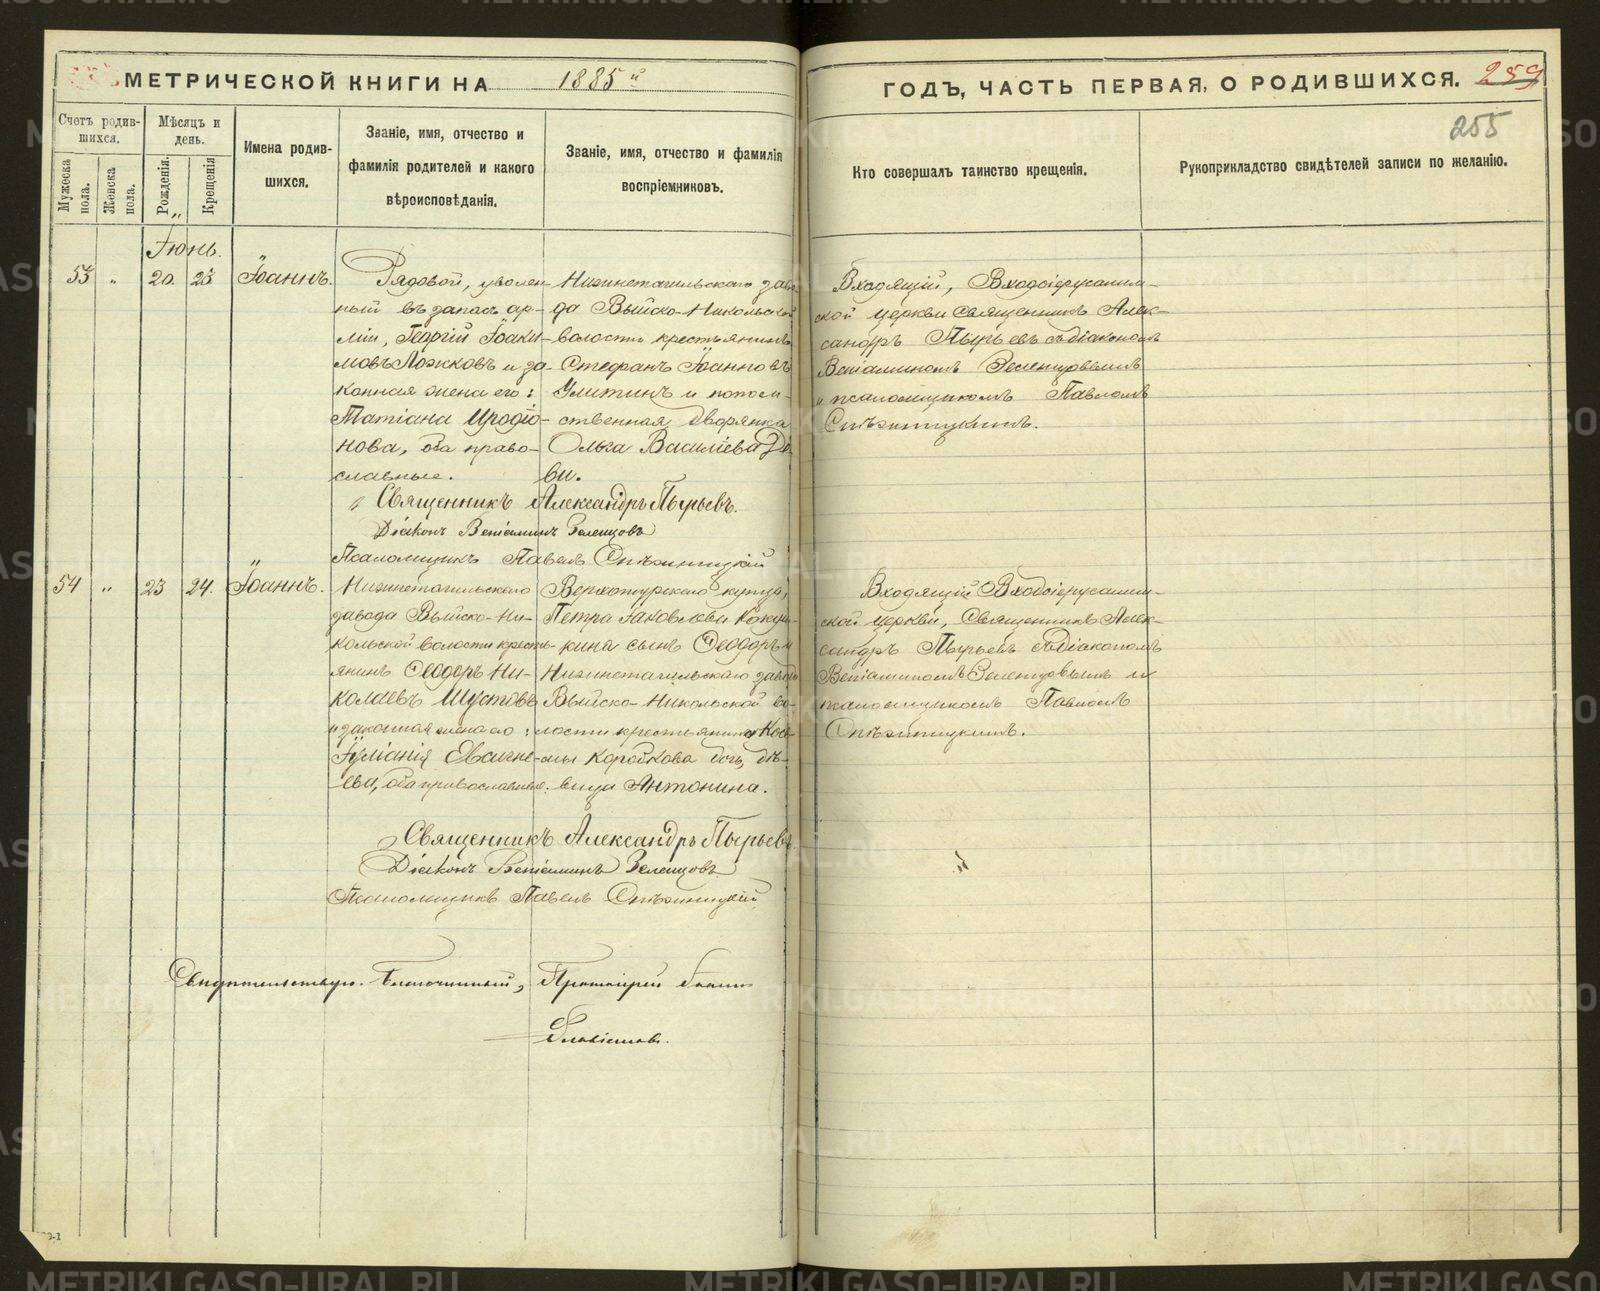 МЕТРИЧЕСКОЙ КНИГИ НА 1885 й
ГОДЪ, ЧАСТЬ ПЕРВАЯ, О РОДИВШИХСЯ. 259
255
Счетъ родив-
шихся.
Мужеска пола.
Женска пола.
Мѣсяцъ и
день.
Рожденія.
Крещенія
Имена родив-
шихся.
Званіе, имя, отчество и
фамилія родителей и какого
вѣроисповѣданія.
Званіе, имя, отчество и фамилія
воспріемниковъ.
Кто совершалъ таинство крещенія.
Рукоприкладство свидѣтелей записи по желанію.
Іюнь.
53 " 20. 23 Іоаннъ.
Рядовой, уволен-
ный въ запасъ ар-
міи, Георгій Іоаки-
мовъ Ложковъ и за-
конная жена его:
Татіана Иродіо-
нова, оба право-
славные.
Нижнетагильскаго заво-
да Выйско-Никольской
волости крестьянинъ
Стефанъ Іоанновъ
Улитинъ и потом-
ственная дворянка
Ольга Василіева Де-
ви.
Входящій, Входоіерусалим-
ской церкви священникъ Алек-
сандръ Пырьевъ съ діакономъ
Веніаминомъ Зеленцовымъ
и псаломщикомъ Павломъ
Стѣжинскимъ.
Священникъ Александръ Пырьевъ.
Діаконъ Веніаминъ Зеленцовъ
Псаломщикъ Павелъ
54 " 23 24. Іоаннъ.
Нижнетагильскаго
завода Выйско-Ни-
кольской волости кресть-
янинъ Ѳеодоръ Ни-
колаевъ Шустовъ
и законная жена его:
Іуліанія Евгене-
ева, оба православные.
Верхотурскаго купца,
Петра Іаковлева Кокуш-
кина сынъ Ѳеодоръ и
Нижнетагильскаго завода
Выйско-Никольской во-
лости крестьянина Кось-
мы Коробкова дочь, дѣ-
вица Антонина.
Входящій Входоіерусалим-
ской церкви, Священникъ Алек-
сандръ Пырьевъ съ діакономъ
Веніаминомъ Зеленцовымъ и
псаломщикомъ Павломъ
Священникъ Александръ Пырьевъ.
Діаконъ Веніаминъ Зеленцовъ
Псаломщикъ Павелъ
Свидѣтельствую. Благочинный, Протоіерей Іоаннъ
METRIKI.GASO-URAL.RU